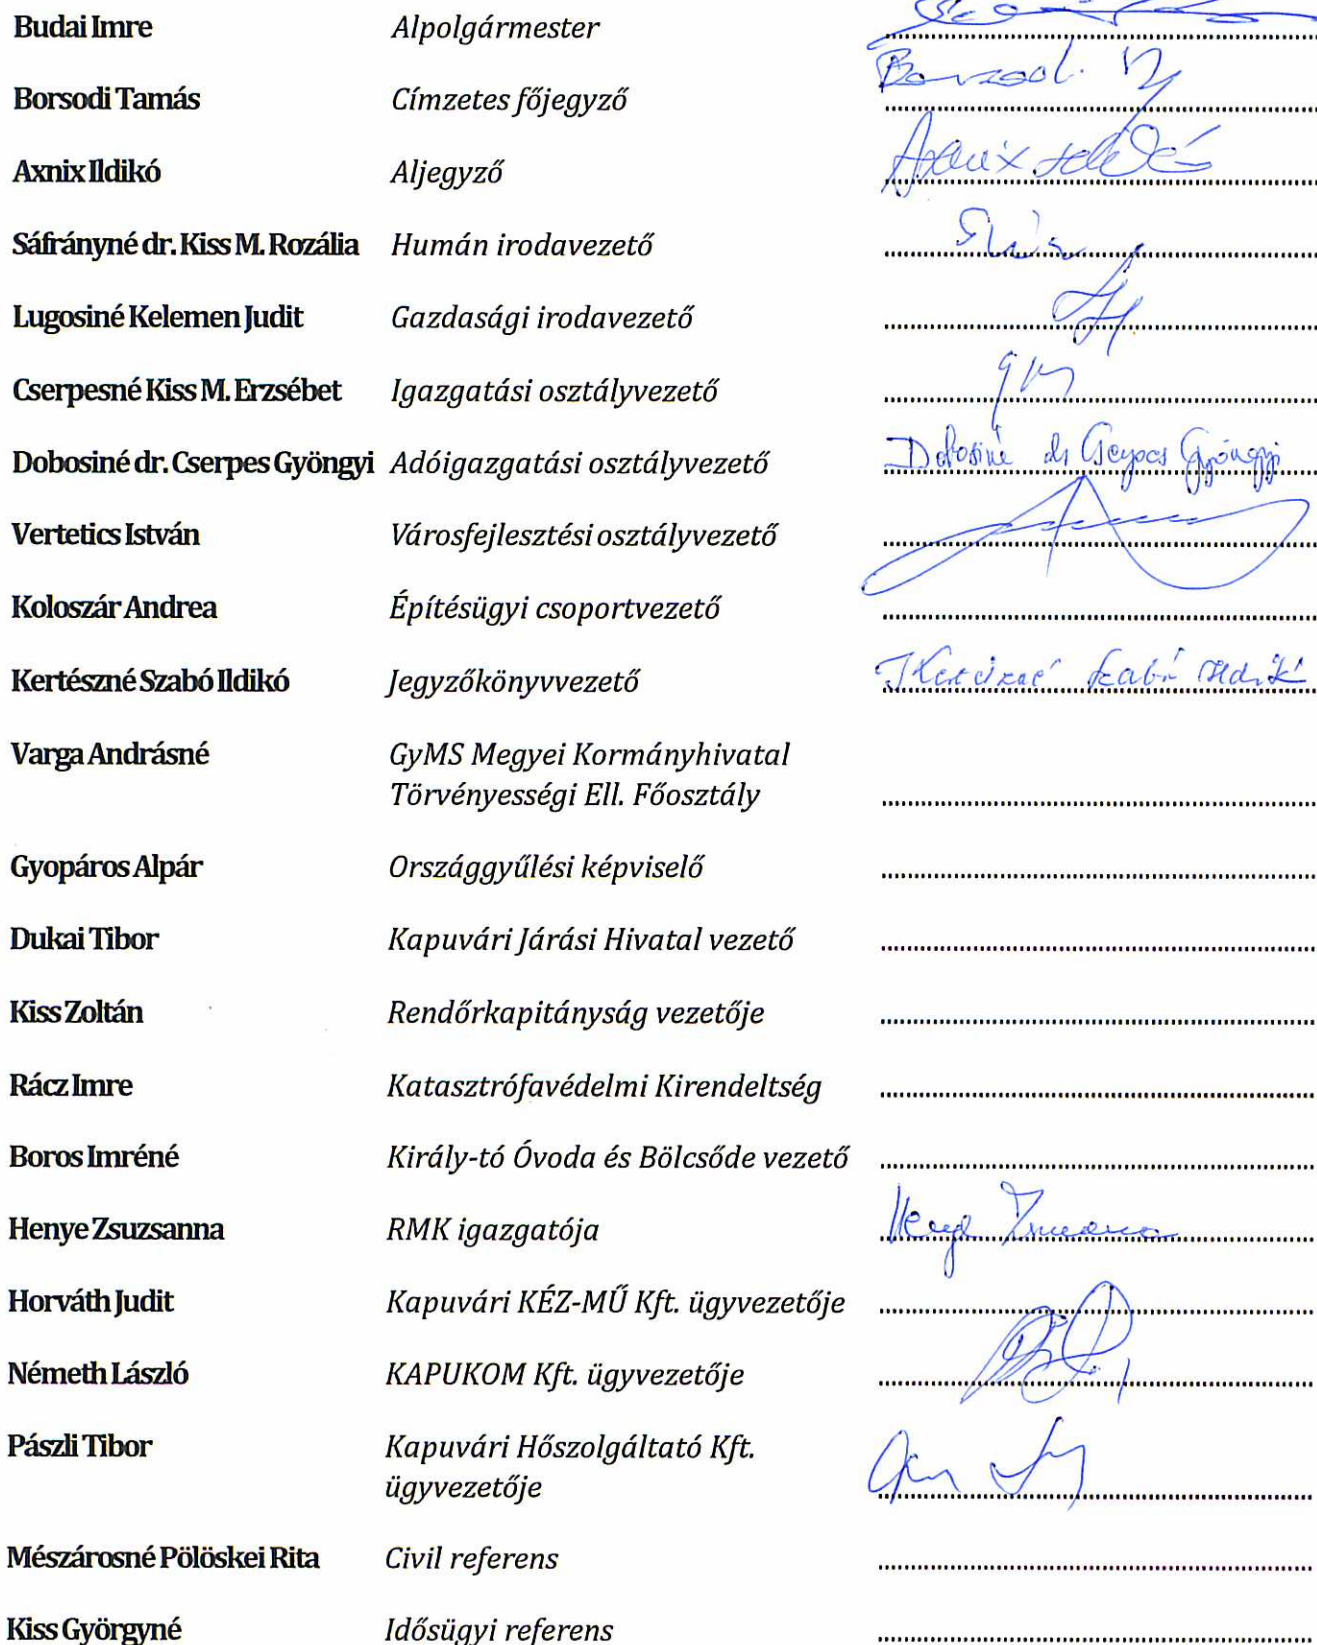 Budai Imre Alpolgármester
Borsodi Tamás Címzetes főjegyző
Axnix Ildikó Aljegyző
Sáfrányné dr. Kiss M. Rozália Humán irodavezető
Lugosiné Kelemen Judit Gazdasági irodavezető
Cserpesné Kiss M. Erzsébet Igazgatási osztályvezető
Dobosiné dr. Cserpes Gyöngyi Adóigazgatási osztályvezető Dobosiné dr Cserpes Gyöngyi
Vertetics István Városfejlesztési osztályvezető
Koloszár Andrea Építésügyi csoportvezető
Kertészné Szabó Ildikó Jegyzőkönyvvezető Kertészné Szabó Ildikó
Varga Andrásné GyMS Megyei Kormányhivatal
Törvényességi Ell. Főosztály
Gyopáros Alpár Országgyűlési képviselő
Dukai Tibor Kapuvári Járási Hivatal vezető
Kiss Zoltán Rendőrkapitányság vezetője
Rácz Imre Katasztrófavédelmi Kirendeltség
Boros Imréné Király-tó Óvoda és Bölcsőde vezető
Henye Zsuzsanna RMK igazgatója Henye Zsuzsanna
Horváth Judit Kapuvári KÉZ-MŰ Kft. ügyvezetője
Németh László KAPUKOM Kft. ügyvezetője
Pászli Tibor Kapuvári Hőszolgáltató Kft.
ügyvezetője
Mészárosné Pölöskei Rita Civil referens
Kiss Györgyné Idősügyi referens